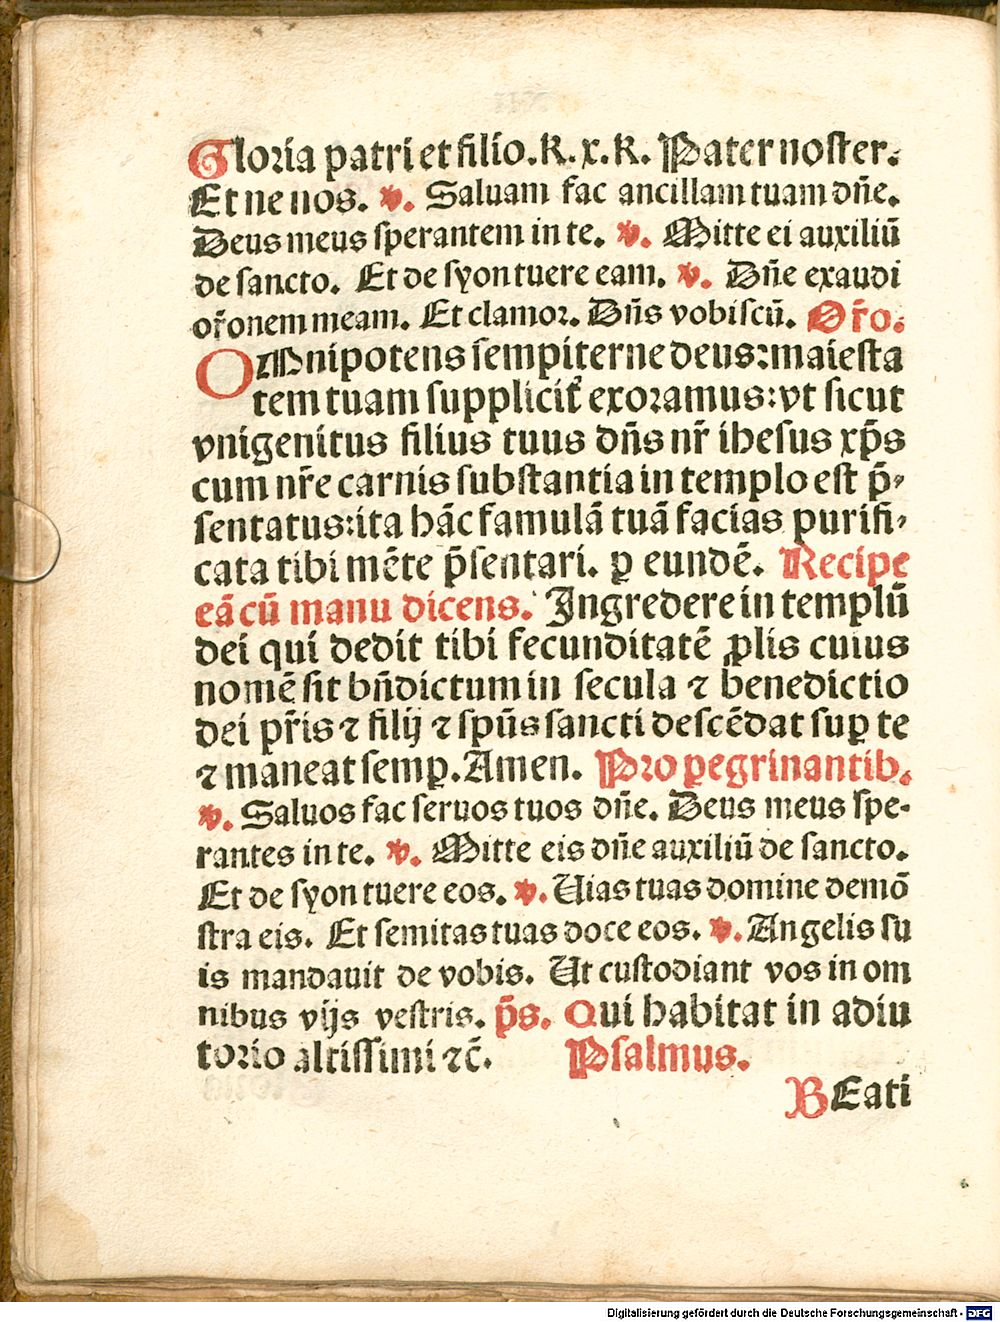 Gloria patri et filio. K. x. K. Pater noster.
Et ne nos. ℣. Saluam fac ancillam tuam dñe.
Deus meus sperantem in te. ℣. Mitte ei auxiliū
de sancto. Et de syon tuere eam. ℣. Dñe exaudi
or̃onem meam. Et clamor. Dñs vobiscū. Or̃o.
OMnipotens sempiterne deus: maiesta
tem tuam supplicit̃ exoramus: vt sicut
vnigenitus filius tuus dñs nr̃ ihesus xp̄s
cum nr̃e carnis substantia in templo est p̄-
sentatus: ita hāc famulā tuā facias purifi-
cata tibi mēte p̄sentari. ꝑ eundē. Recipe
eā cū manu dicens. Ingredere in templū
dei qui dedit tibi fecunditatē ꝓlis cuius
nomē sit bñdictum in secula ⁊ benedictio
dei pr̃is ⁊ filij ⁊ spūs sancti descēdat suꝑ te
⁊ maneat semꝑ. Amen. Pro ꝑegrinantib.
℣. Saluos fac seruos tuos dñe. Deus meus spe-
rantes in te. ℣. Mitte eis dñe auxiliū de sancto.
Et de syon tuere eos. ℣. Uias tuas domine demō
stra eis. Et semitas tuas doce eos. ℣. Angelis su
is mandauit de vobis. Ut custodiant vos in om
nibus vijs vestris. p̄s. Qui habitat in adiu
torio altissimi ⁊c̄. Psalmus.
BEati
Digitalisierung gefördert durch die Deutsche Forschungsgemeinschaft - DFG